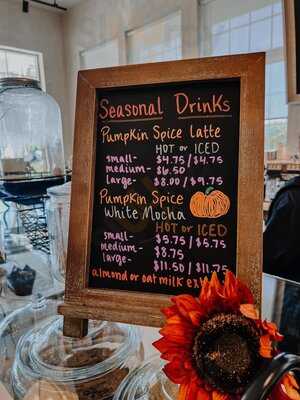 Seasonal Drinks
Pumpkin Spice Latte
HOT or ICED
small- $4.75 / $4.75
medium- $6.50
large- $8.00 / $9.75
Pumpkin Spice
White Mocha
HOT or ICED
small- $5.75 / $5.75
medium- $8.75
large- $11.50 / $11.75
almond or oat milk